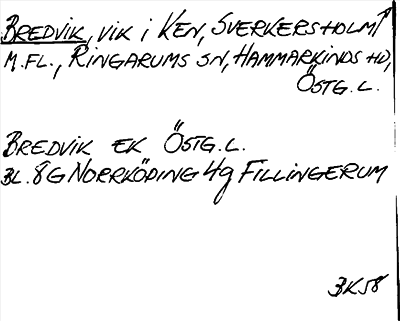 BREDVIK, VIK I KEN, SVERKERSHOLM
M.FL., RINGARUMS SN, HAMMARKINDS HD,
ÖSTG. L.
BREDVIK EK ÖSTG. L.
BL. 8G NORRKÖPING 4g FILLINGERUM
BK58